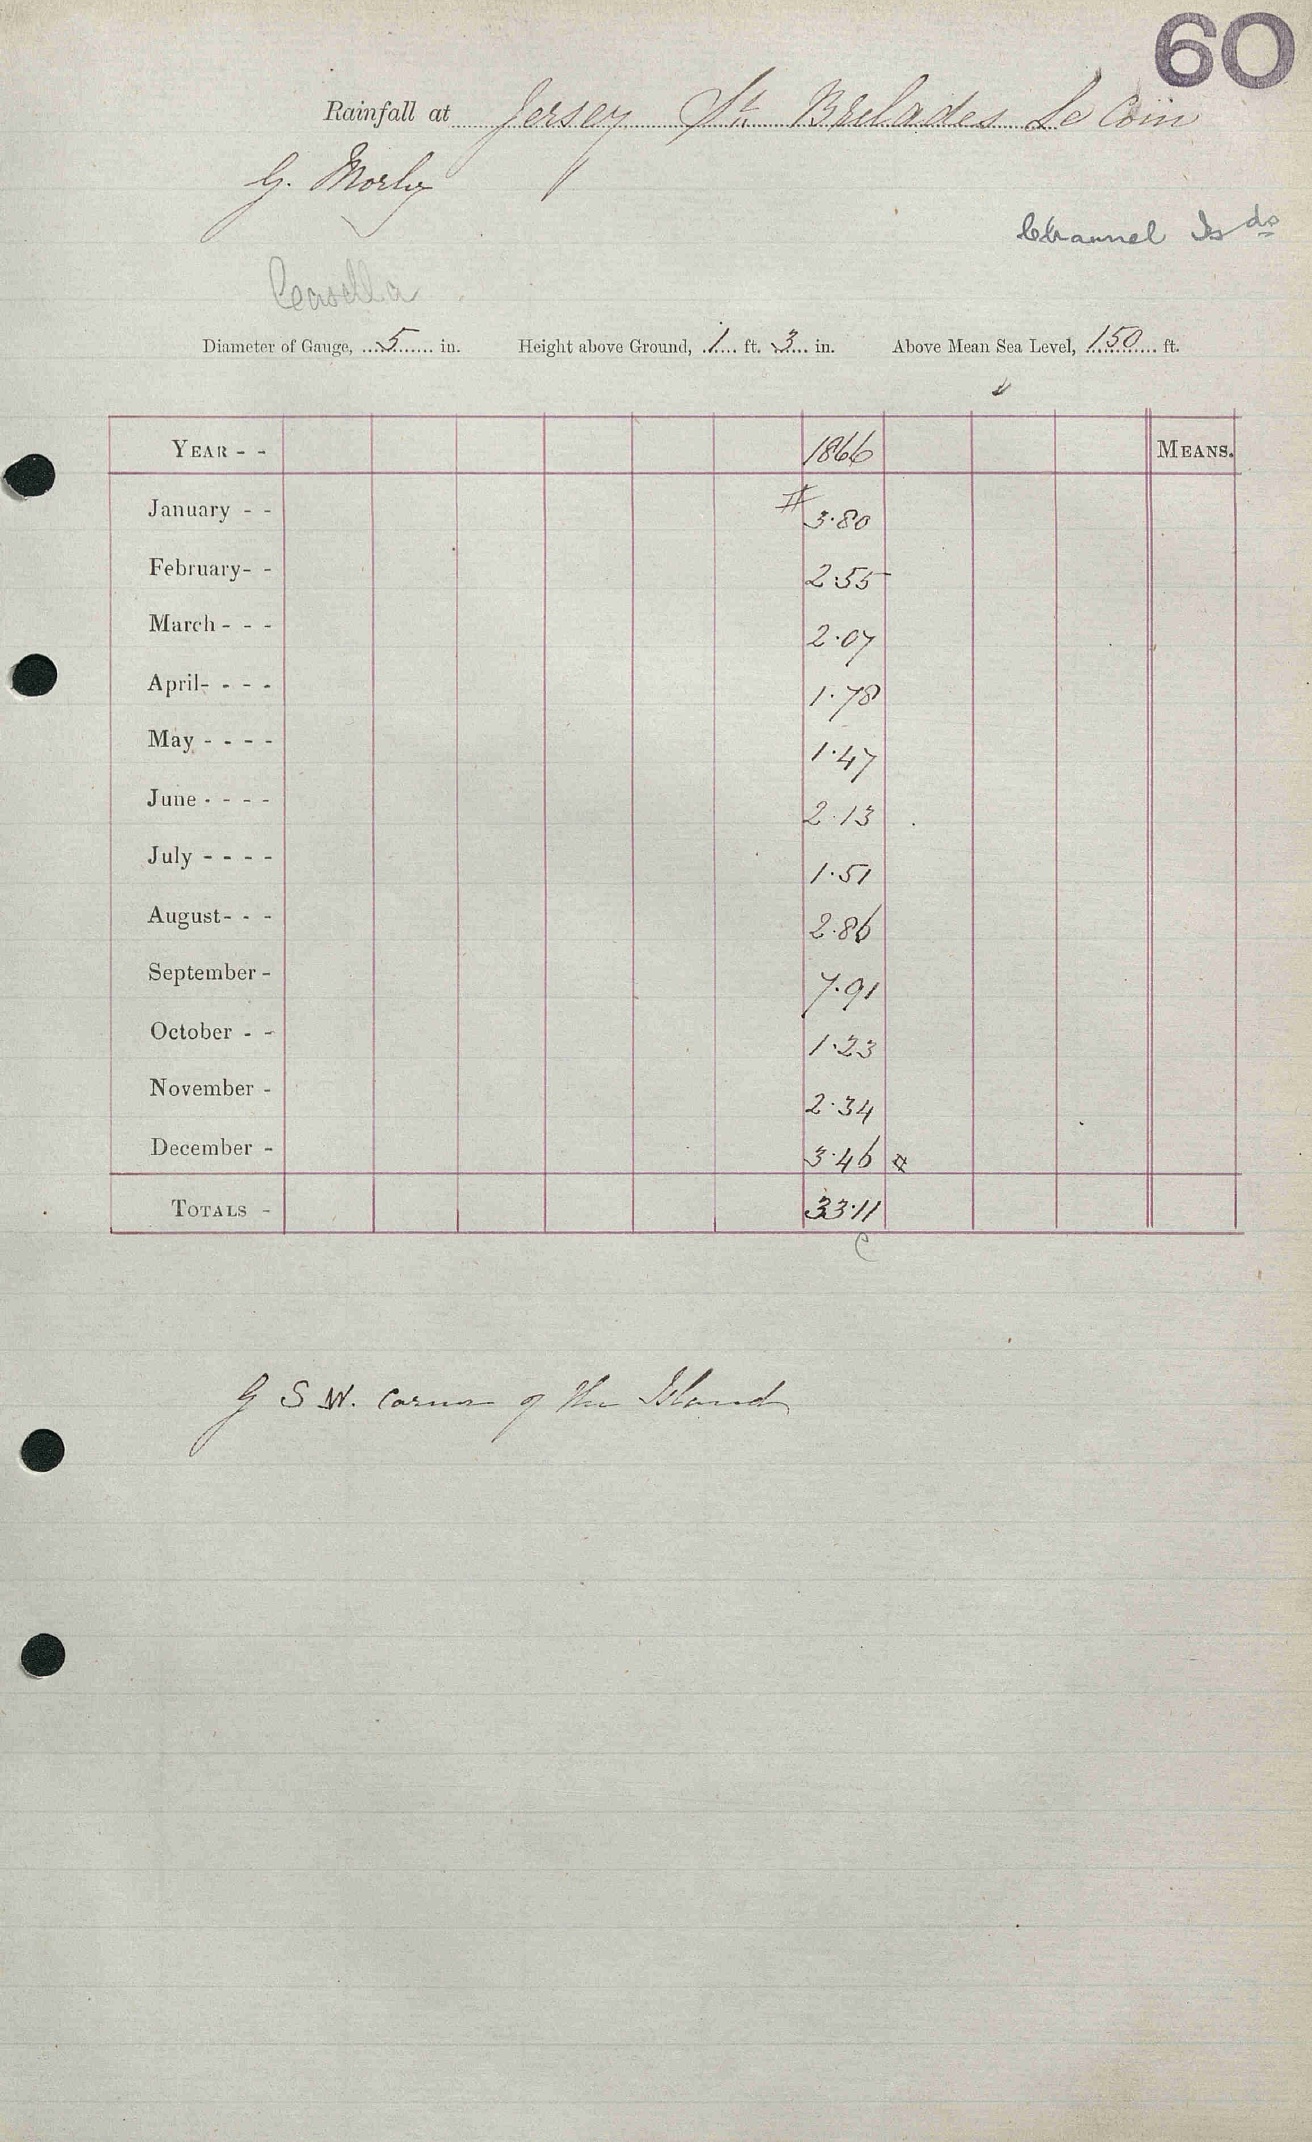 60
Rainfall at Jersey St. Brelades Le Coin
G. Morley
Channel Isds
Casella
Diameter of Gauge, 5 in. Height above Ground, 1 ft. 3 in. Above Mean Sea Level, 150 ft.
YEAR - - 1866 MEANS.
January - - 3.80
February- - 2.55
March - - - 2.07
April- - - - 1.78
May - - - - 1.47
June - - - - 2.13
July - - - - 1.51
August- - - 2.86
September - 7.91
October - - 1.23
November - 2.34
December - 3.46
TOTALS - 33.11
C
G S W. corner of the Island